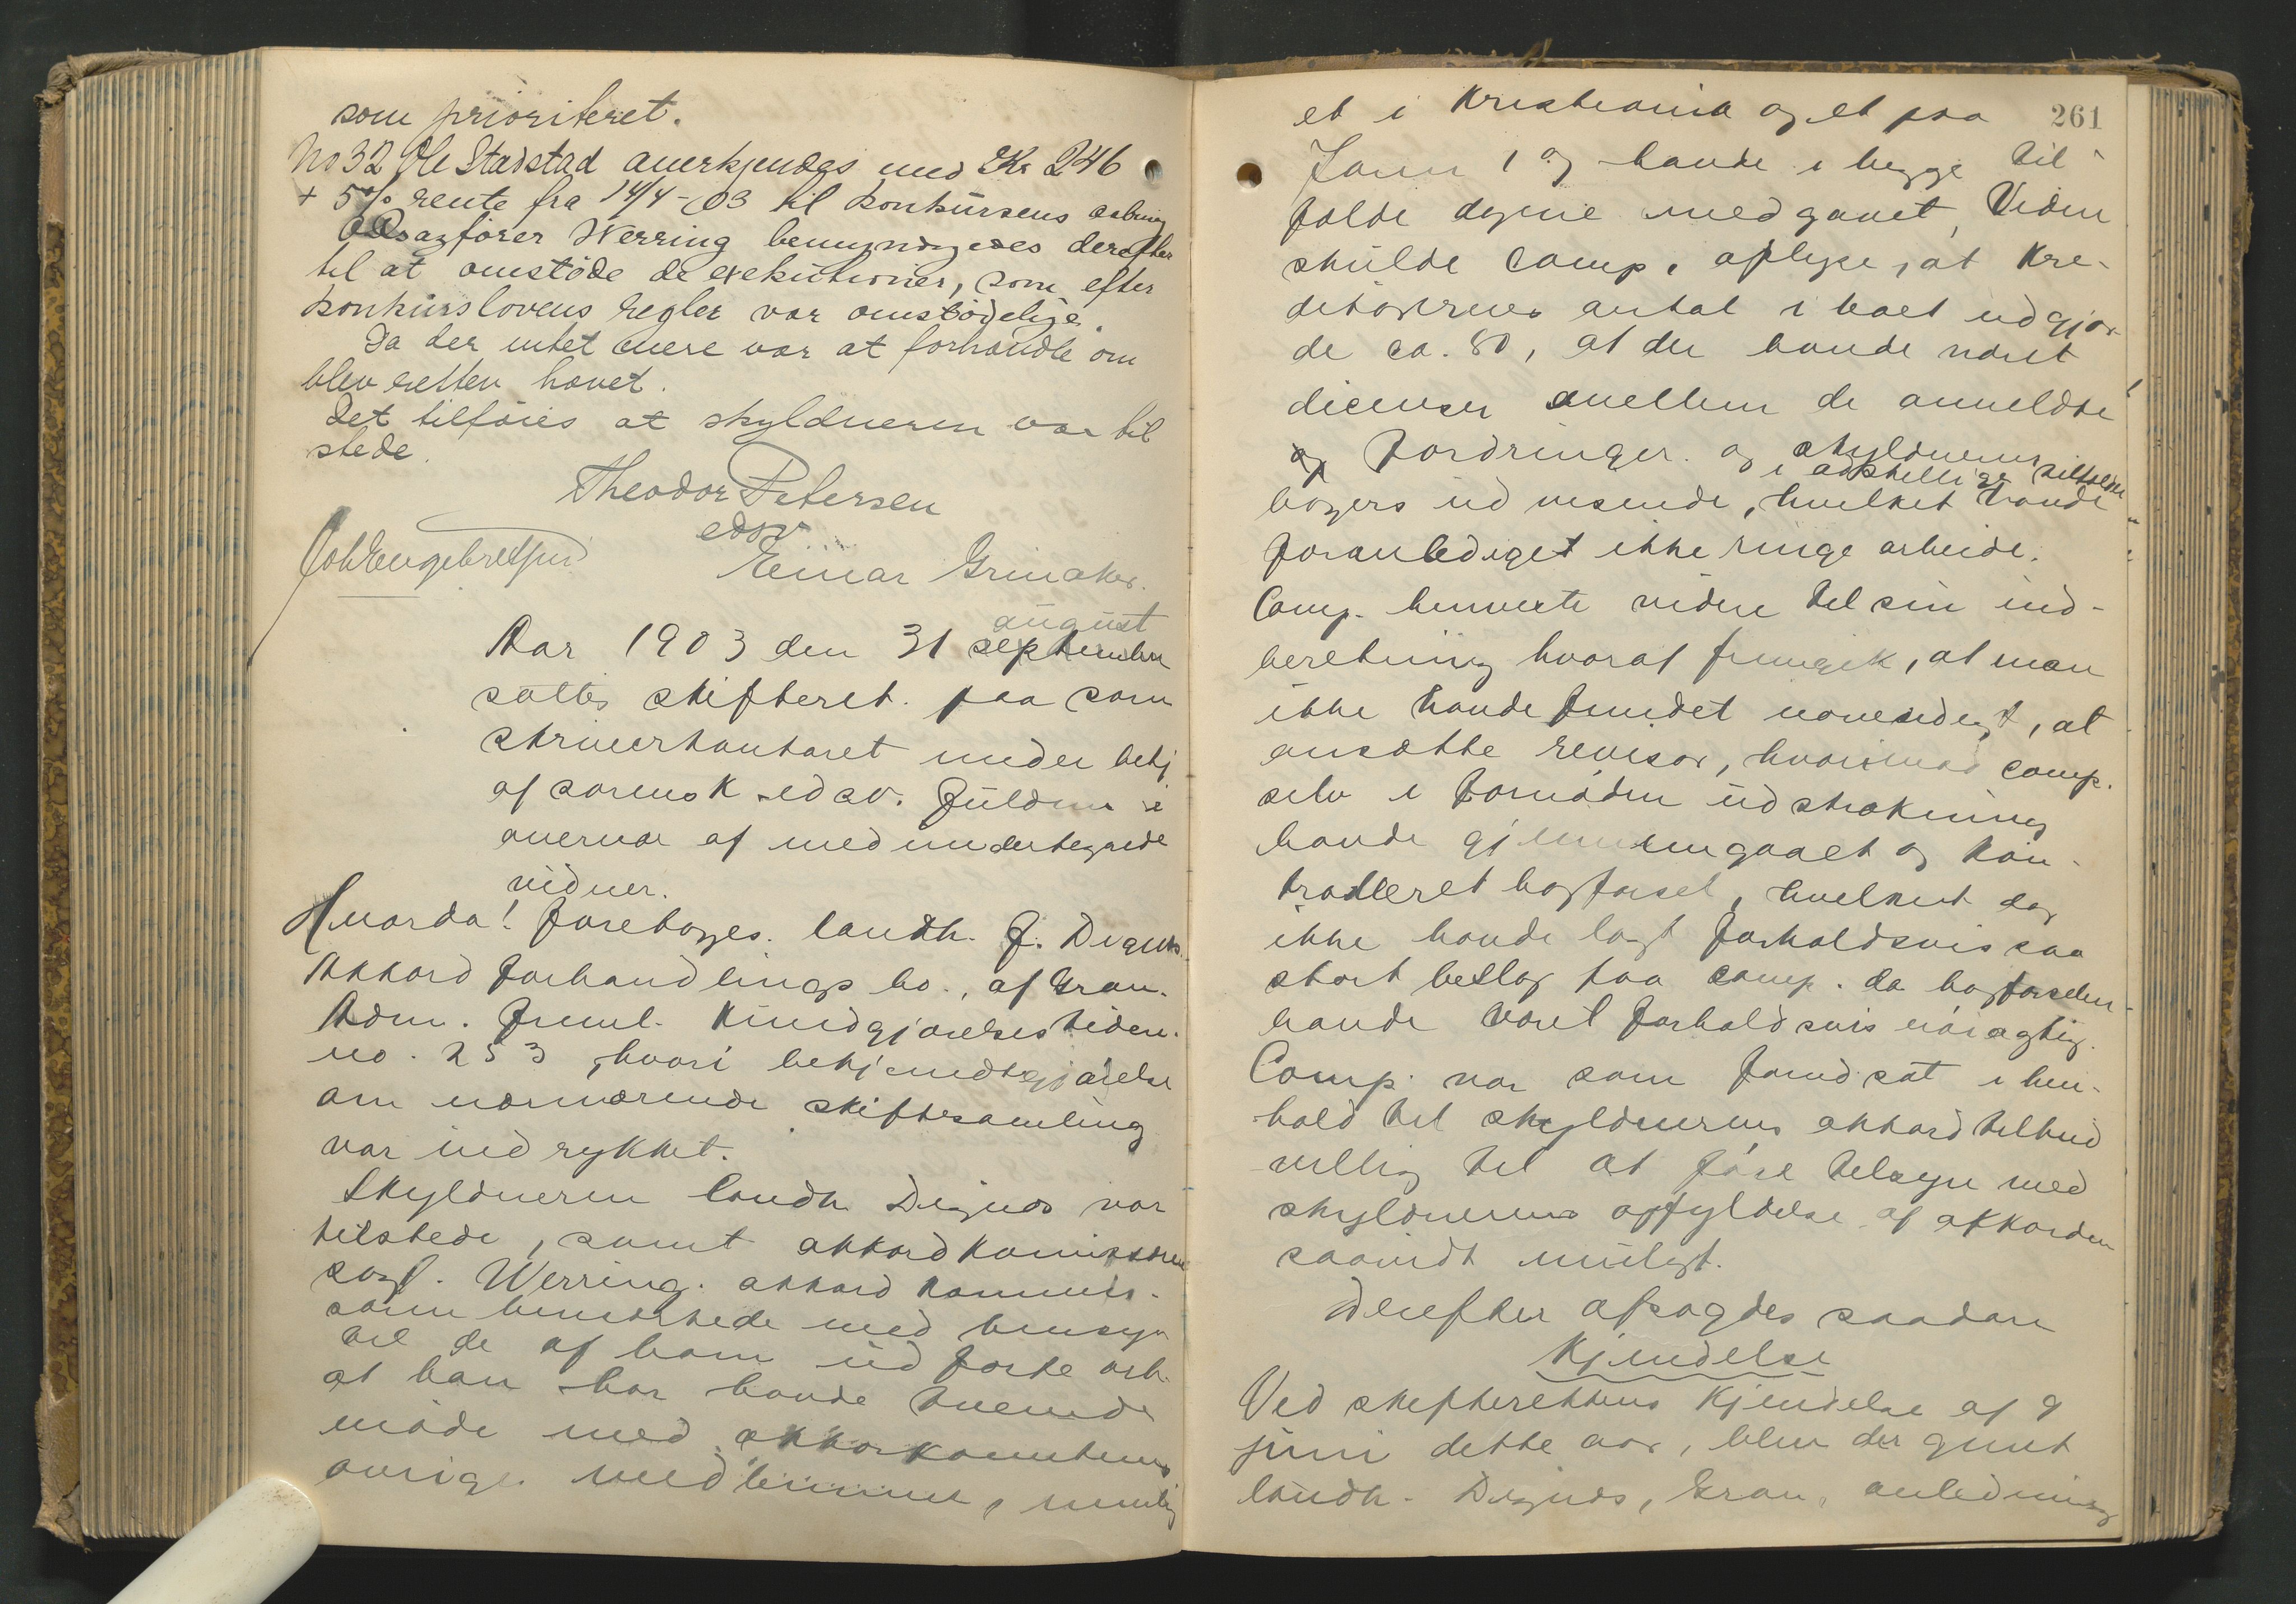 som prioriteret.
No 32 Ole Stadstad anerkjendes med Kr 246
+ 5% rente fra 14/4-03 til konkursens aabning
ORsagfører Werring bemyndigedes derefter
til at omstøde de exekutioner, som efter
konkurslovens regler var omstødelige.
Da der intet mere var at forhandle om
blev retten hævet.
Det tilføies at skyldneren var til
stede.
Theodor Petersen
edsv
Joh Engebretsen Einar Grinaker.
august
Aar 1903 den 31 september
sattes skifteret paa soren
skriverkontoret under betj
af sorensk edsv. fuldm i
overvær af medundertegnede
vidner.
Hvorda! foretoges landh. J. Dignes
Akkordforhandlingsbo, af Gran.
Adm. freml. Kundgjørelsestiden.
no. 253, hvori bekjendtgjørelse
om nærværende skiftesamling
var indrykket.
Skyldneren landh. Dignes var
tilstede, samt akkordkommissæren
sagf. Werring. akkord kommis-
særen bemærkede med hensyn
til de af ham udførte arb.
at han har havde tvende
møde med akkordkomiteens
øvrige medlemmer, nemlig
261
et i Kristiania og et paa
Jaren, og havde i begge til-
fælde dagene medgaaet, Viden
skulde Comp. oplyse, at Kre-
ditorernes antal i boet udgjor-
de ca. 80, at der havde været
differenser mellem de anmeldte
og fordringer og skyldnerens
i adskillige tilfælde
bøgers udvisende, hvilket havde
foranlediget ikke ringe arbeide.
Comp. henviste videre til sin ind-
beretning hvoraf fremgik, at man
ikke havde fundet nødvendigt, at
ansætte revisor, hvorimod comp.
selv i fornøden udstrækning
havde gjennemgaaet og kon-
trolleret bogførsel, hvilket dog
ikke havde lagt forholdsvis saa
stort beslag paa comp. da bogførselen
havde været forholdsvis nøiagtig.
Comp. var som forudsat i hen-
hold til skyldnerens akkordtilbud
villig til at føre tilsyn med
skyldnerens opfyldelse af akkorden
saavidt muligt.
Derefter afsagdes saadan
Kjendelse
Ved skifterettens Kjendelse af 9
juni dette aar, blev der givet
landh. Dignes, Gran, anledning